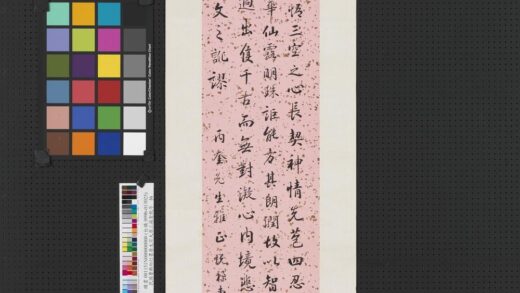 悟三空之心長契神情先苞四忍
華仙露明珠詎能方其朗潤故以智
迥出隻千古而無對凝心內境悲
文之訛謬
丙奎先生雅正